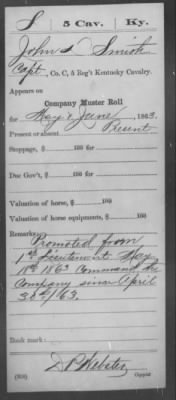 S | 5 Cav. | Ky.
John S Smith
Capt, Co. C, 5 Reg't Kentucky Cavalry.
Appears on
Company Muster Roll
for May & June, 1863.
Present or absent Present
Stoppage, $ 100 for
Due Gov't, $ 100 for
Valuation of horse, $ 100
Valuation of horse equipments, $ 100
Remarks: Promoted from
1st Lieutenant May
18th 1863 Command the
Company since April
30th/63.
Book mark:
D P Webster
(858) Copyist